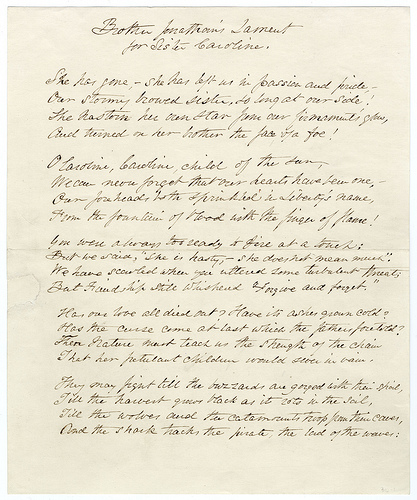 Brother Jonathan's Lament
for Sister Caroline.
She has gone, – she has left us in passion and pride, –
Our stormy browed sister, so long at our side!
She has torn her own star from our firmament's glow,
And turned on her brother the face of a foe!
O Caroline, Caroline, child of the sun,
We can never forget that our hearts have been one, –
Our foreheads both sprinkled in Liberty's name,
From the fountain of blood with the finger of flame!
You were always too ready to fire at a touch;
But we said, "She is hasty, – she does not mean much";
We have scowled when you uttered some turbulent threat;
But Friendship still whispered "Forgive and forget."
Has our love all died out? Have its ashes grown cold?
Has the curse come at last which the fathers foretold?
Then Nature must teach us the strength of the chain
That her petulant children would sever in vain.
They may fight till the buzzards are gorged with their spoil,
Till the harvest grows black as it rots in the soil,
Till the wolves and the catamounts troop from their caves,
And the shark tracks the pirate, the lord of the waves: